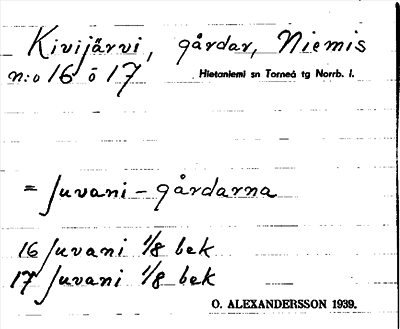 Kivijärvi, gårdar, Niemis
n:o 16 o 17
Hietaniemi sn Torneå tg Norrb. l.
= Juvani - gårdarna
16 Juvani 1/8 bek
17 Juvani 1/8 bek
O. ALEXANDERSSON 1939.